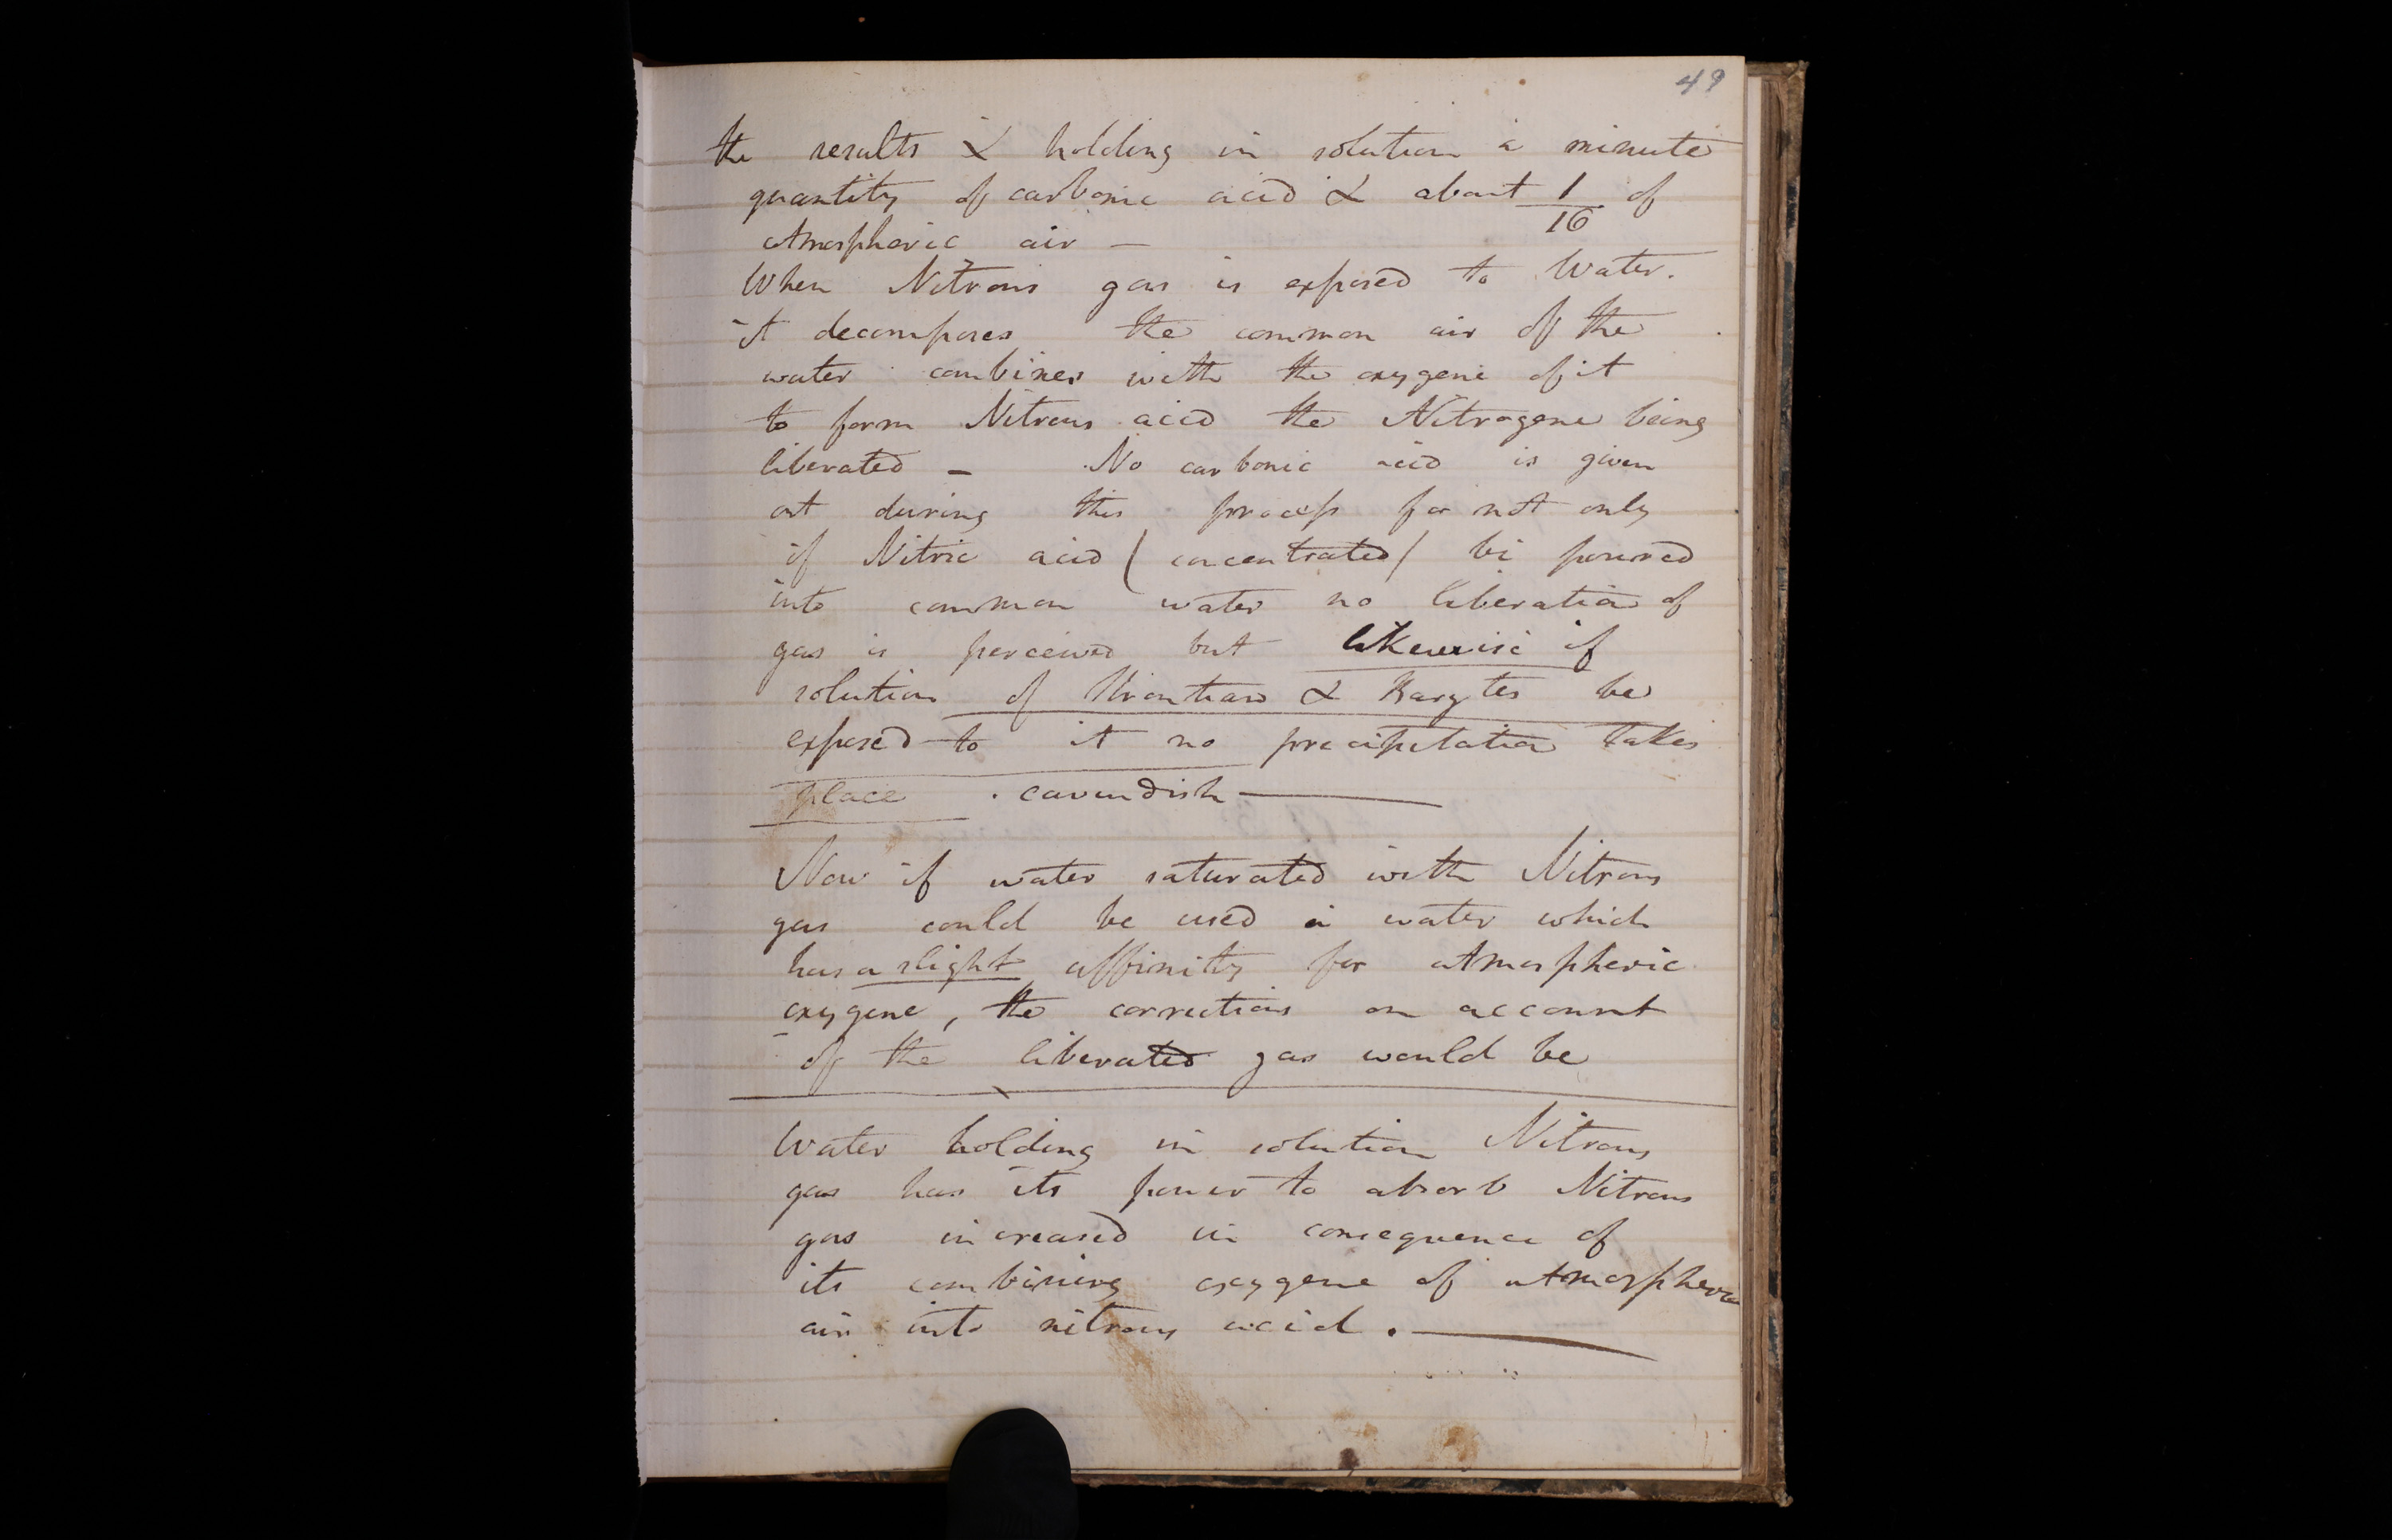 49
the results & holding in solution a minute
quantity of carbonic acid & about 1/16 of
atmospheric air —
When Nitrous gas is exposed to Water.
it decomposes the common air of the
water combines with the oxygene of it
to form Nitrous acid the Nitrogene being
liberated — No carbonic acid is given
out during this process for not only
if Nitric acid (concentrated) be poured
into common water no liberation of
gas is perceived but likewise if
solution of Strontian & Barytes be
exposed to it no precipitation takes
place . cavendish —
Now if water saturated with Nitrous
gas could be used a water which
has a slight affinity for atmospheric
oxygene, the corrections on account
of the liberated gas would be
Water holding in solution Nitrous
gas has its power to absorb Nitrous
gas increased in consequence of
its combining oxygene of atmospheric
air into nitrous acid . —